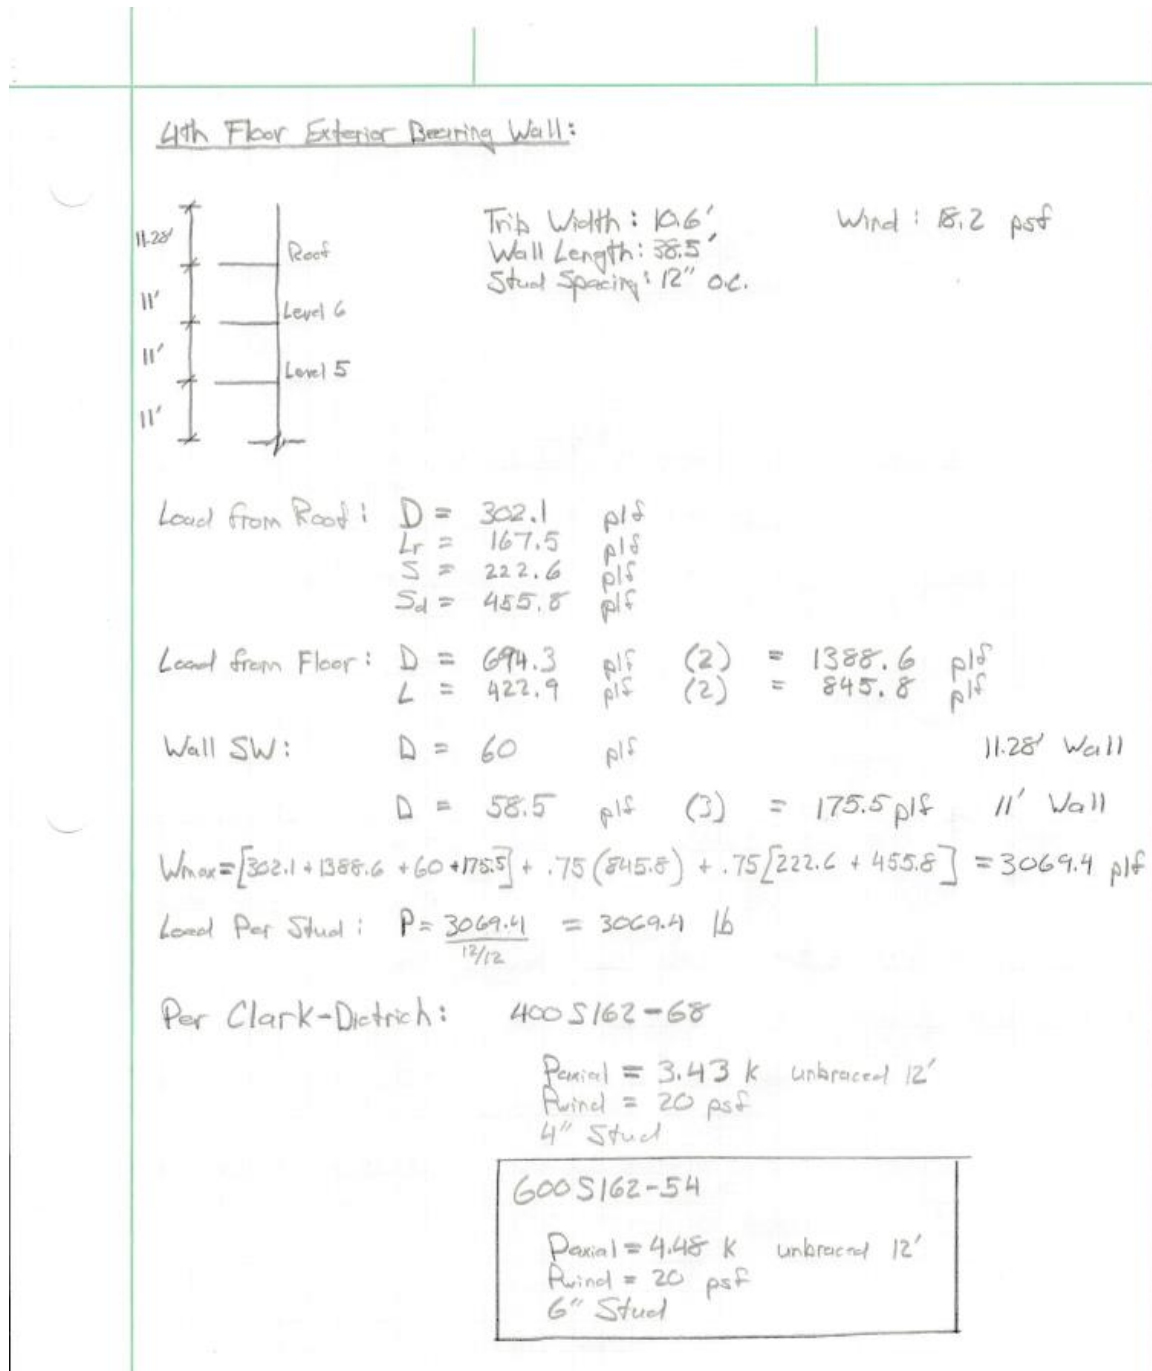 4th Floor Exterior Bearing Wall:
Trib Width: 10.6' Wind: 18.2 psf
Wall Length: 38.5'
Stud Spacing: 12" o.c.
11.28' Roof
11' Level 6
11' Level 5
11'
Load from Roof: D = 302.1 plf
Lr = 167.5 plf
S = 222.6 plf
Sd = 455.8 plf
Load from Floor: D = 694.3 plf (2) = 1388.6 plf
L = 422.9 plf (2) = 845.8 plf
Wall SW: D = 60 plf 11.28' Wall
D = 58.5 plf (3) = 175.5 plf 11' Wall
Wmax = [302.1 + 1388.6 + 60 + 175.5] + .75 (845.8) + .75 [222.6 + 455.8] = 3069.4 plf
Load Per Stud: P = 3069.4 = 3069.4 lb
12/12
Per Clark-Dietrich: 400S162-68
Paxial = 3.43 k unbraced 12'
Pwind = 20 psf
4" Stud
600S162-54
Paxial = 4.48 k unbraced 12'
Pwind = 20 psf
6" Stud